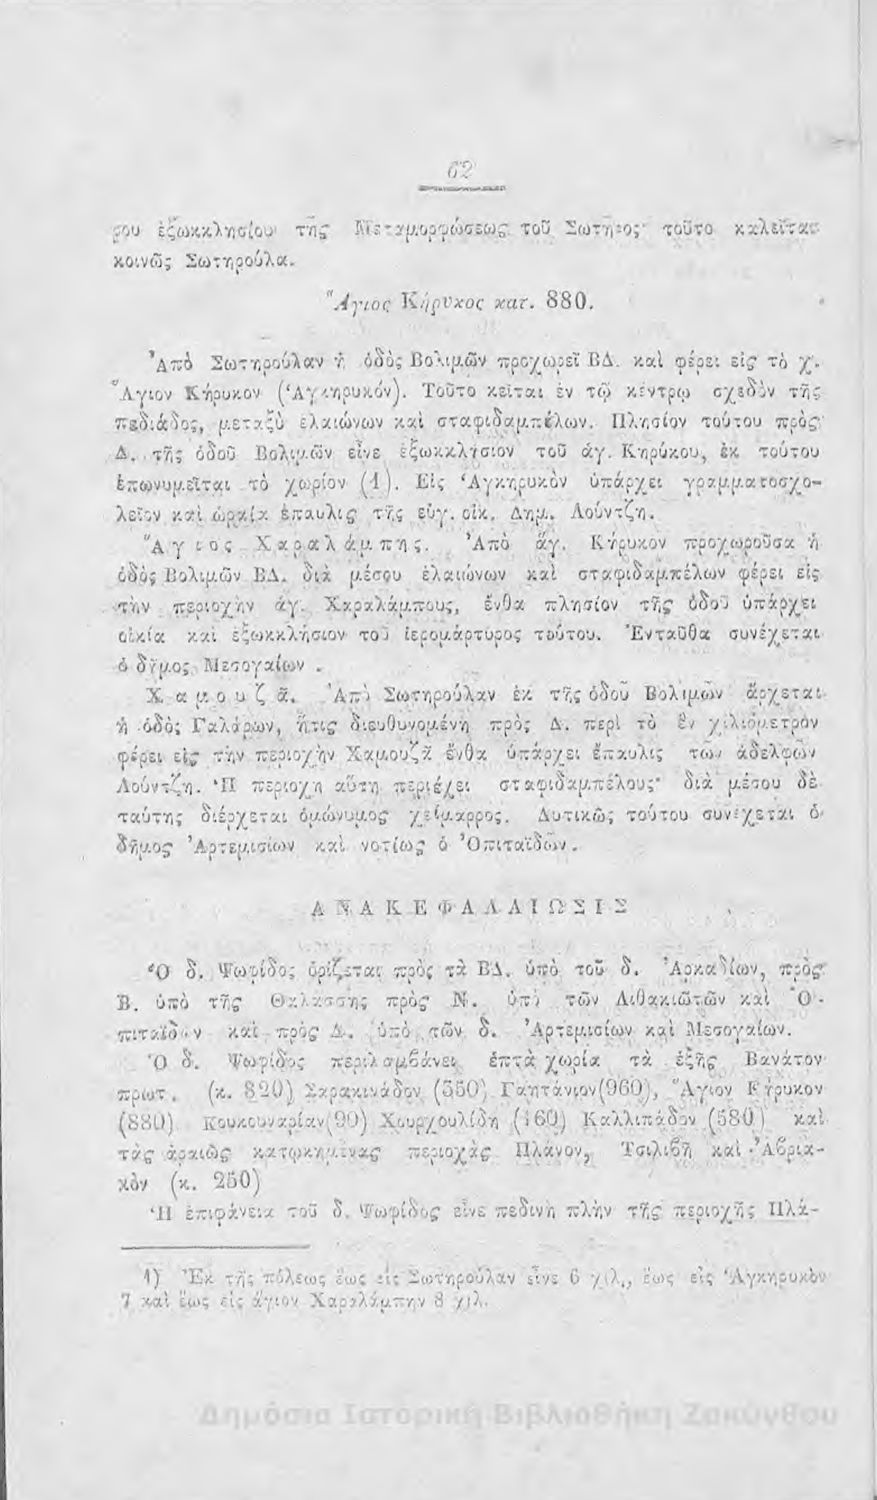 62
ρου ἐξωκκλησίου τῆς Μεταμορφώσεως τοῦ Σωτῆρος· τοῦτο καλεῖται
κοινῶς Σωτηρούλα.
Ἅγιος Κήρυκος κατ. 880.
Ἀπὸ Σωτηρούλαν ἡ ὁδὸς Βολιμῶν προχωρεῖ ΒΔ. καὶ φέρει εἰς τὸ χ.
Ἅγιον Κήρυκον (Ἁγκηρυκόν). Τοῦτο κεῖται ἐν τῷ κέντρῳ σχεδὸν τῆς
πεδιάδος, μεταξὺ ἐλαιώνων καὶ σταφιδαμπέλων. Πλησίον τούτου πρὸς
Δ. τῆς ὁδοῦ Βολιμῶν εἶνε ἐξωκκλήσιον τοῦ ἁγ. Κηρύκου, ἐκ τούτου
ἐπωνυμεῖται τὸ χωρίον (1). Εἰς Ἁγκηρυκὸν ὑπάρχει γραμματοσχο-
λεῖον καὶ ὡραία ἔπαυλις τῆς εὐγ. οἰκ. Δημ. Λούντζη.
Ἅγιος Χαραλάμπης. Ἀπὸ ἅγ. Κήρυκον προχωροῦσα ἡ
ὁδὸς Βολιμῶν ΒΔ. διὰ μέσου ἐλαιώνων καὶ σταφιδαμπέλων φέρει εἰς
τὴν περιοχὴν ἁγ. Χαραλάμπους, ἔνθα πλησίον τῆς ὁδοῦ ὑπάρχει
οἰκία καὶ ἐξωκκλήσιον τοῦ ἱερομάρτυρος τούτου. Ἐνταῦθα συνέχεται
ὁ δῆμος Μεσογαίων .
Χαμουζᾶ. Ἀπὸ Σωτηρούλαν ἐκ τῆς ὁδοῦ Βολιμῶν ἄρχεται
ἡ ὁδὸς Γαλάρων, ἥτις διευθυνομένη πρὸς Δ. περὶ τὸ ἓν χιλιόμετρον
φέρει εἰς τὴν περιοχὴν Χαμουζᾶ ἔνθα ὑπάρχει ἔπαυλις τῶν ἀδελφῶν
Λούντζη. Ἡ περιοχὴ αὕτη περιέχει σταφιδαμπέλους· διὰ μέσου δὲ
ταύτης διέρχεται ὁμώνυμος χείμαρρος. Δυτικῶς τούτου συνέχεται ὁ
δῆμος Ἀρτεμισίων καὶ νοτίως ὁ Ὀπιταϊδῶν.
ΑΝΑΚΕΦΑΛΑΙΩΣΙΣ
Ὁ δ. Ψωφίδος ὁρίζεται πρὸς τὰ ΒΔ. ὑπὸ τοῦ δ. Ἀρκαδίων, πρὸς
Β. ὑπὸ τῆς Θαλάσσης πρὸς Ν. ὑπὸ τῶν Λιθακιωτῶν καὶ Ὀ-
πιταϊδῶν καὶ πρὸς Δ. ὑπὸ τῶν δ. Ἀρτεμισίων καὶ Μεσογαίων.
Ὁ δ. Ψωφίδος περιλαμβάνει ἑπτὰ χωρία τὰ ἑξῆς Βανάτον
πρωτ. (κ. 820) Σαρακινάδον (550) Γαητάνιον(960), Ἅγιον Κήρυκον
(880) Κουκουναρίαν(90) Χουρχουλίδη (160) Καλλιπάδον (580) καὶ
τὰς ἀραιῶς κατῳκημένας περιοχὰς Πλάνον, Τσιλιβῆ καὶ Ἀβρια-
κὸν (κ. 250)
Ἡ ἐπιφάνεια τοῦ δ. Ψωφίδος εἶνε πεδινὴ πλὴν τῆς περιοχῆς Πλά-
1) Ἐκ τῆς πόλεως ἕως εἰς Σωτηρούλαν εἶνε 6 χιλ., ἕως εἰς Ἁγκηρυκὸν
7 καὶ ἕως εἰς ἅγιον Χαραλάμπην 8 χιλ.
Δημόσια Ιστορική Βιβλιοθήκη Ζακύνθου